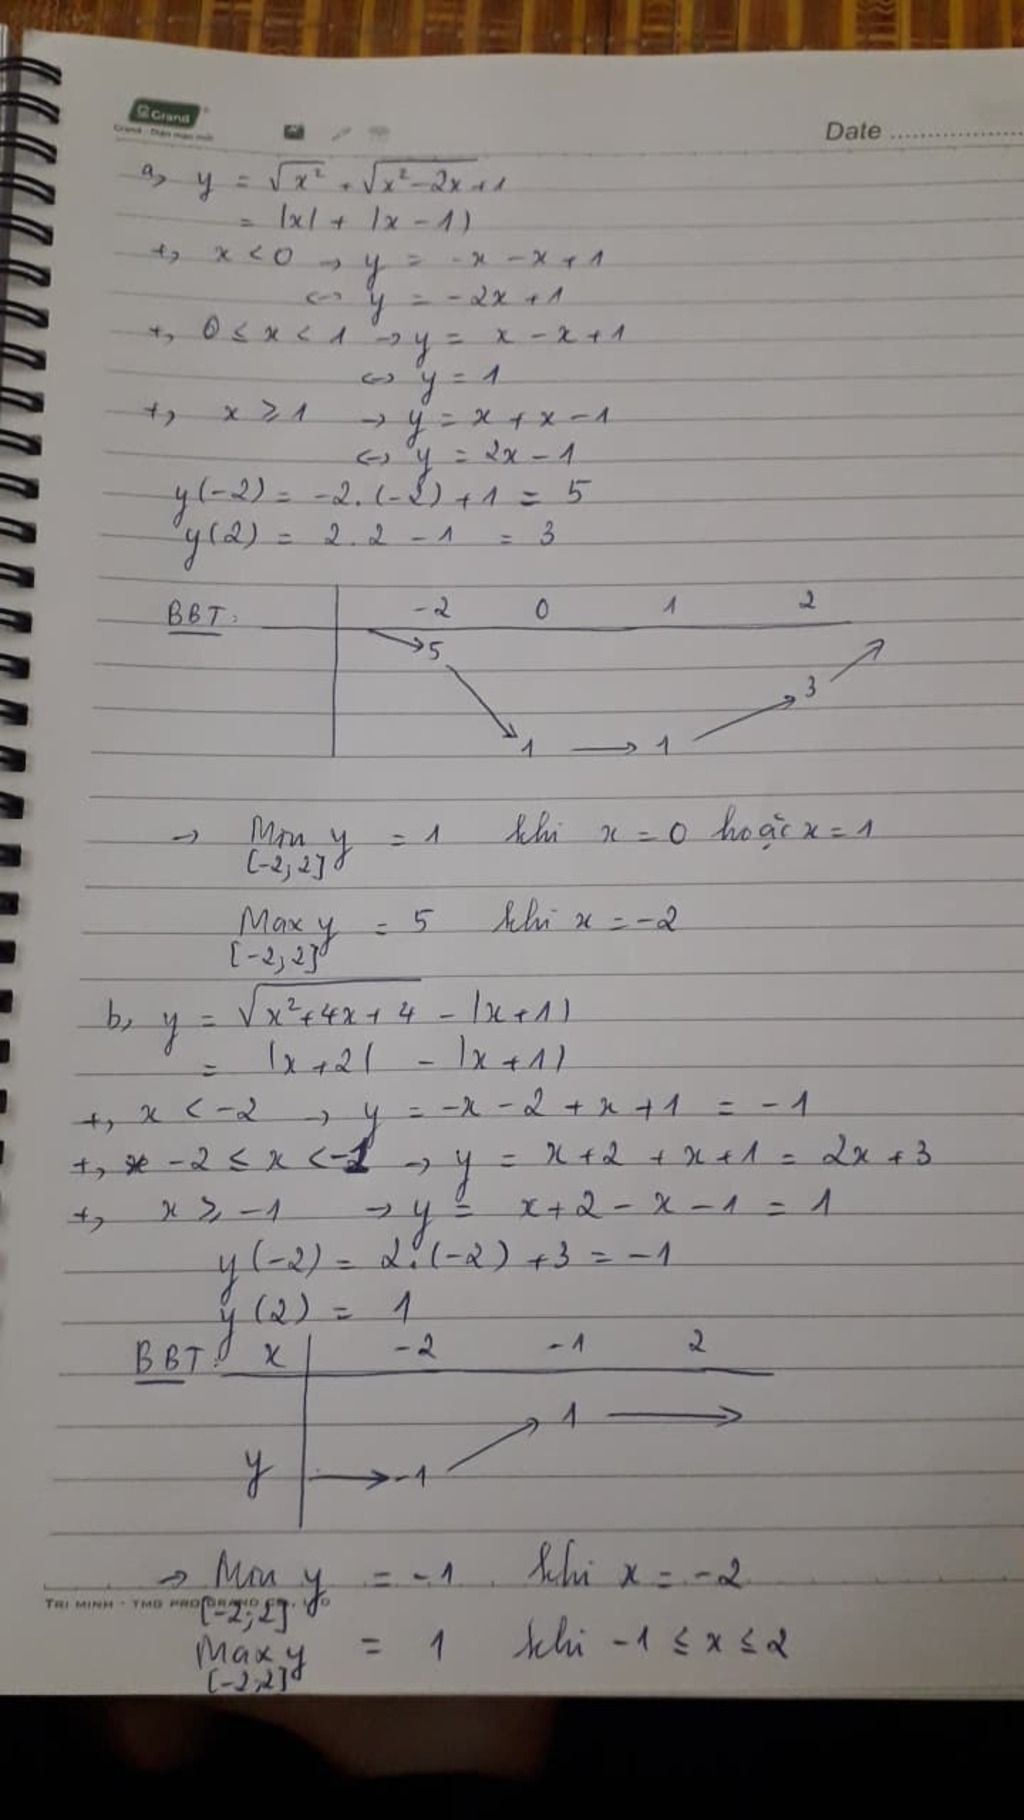 Grand
Date
a, y = √x² + √x²-2x+1
= |x| + |x - 1|
+, x < 0 → y = -x - x + 1
<-> y = -2x + 1
+, 0 ≤ x < 1 → y = x - x + 1
<-> y = 1
+, x ≥ 1 → y = x + x - 1
<-> y = 2x - 1
y(-2) = -2.(-2) + 1 = 5
y(2) = 2.2 - 1 = 3
BBT: -2 0 1 2
5
3
1 → 1
→ Min y = 1 khi x = 0 hoặc x = 1
[-2;2]
Max y = 5 khi x = -2
[-2;2]
b, y = √x²+4x+4 - |x+1|
= |x+2| - |x+1|
+, x < -2 → y = -x - 2 + x + 1 = -1
+, -2 ≤ x < -1 → y = x+2 + x+1 = 2x+3
+, x ≥ -1 → y = x+2 - x - 1 = 1
y(-2) = 2.(-2) + 3 = -1
y(2) = 1
BBT: x -2 -1 2
1 →
y → -1
→ Min y = -1 khi x = -2
TRI MINH - TMG
[-2;2]
Max y = 1 khi -1 ≤ x ≤ 2
[-2;2]